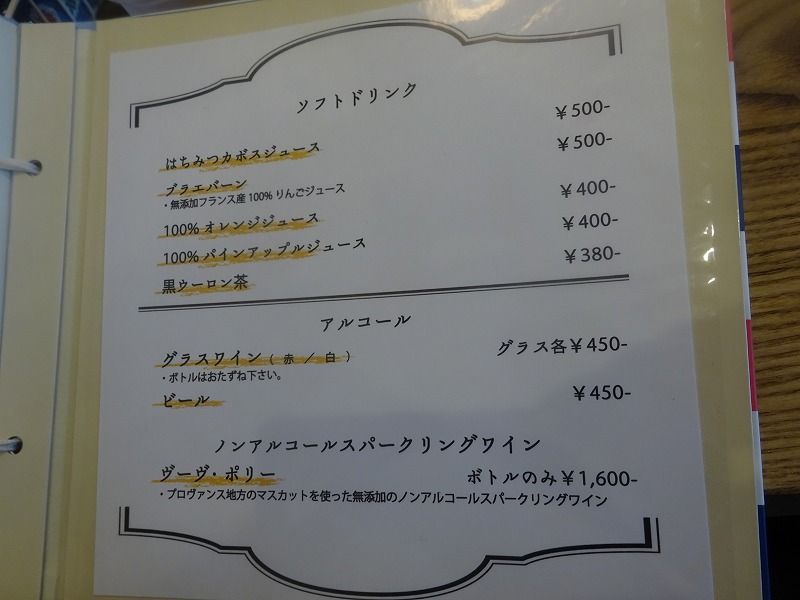 ソフトドリンク
はちみつカボスジュース ¥500-
ブラエバーン ¥500-
・無添加フランス産100%りんごジュース
100%オレンジジュース ¥400-
100%パインアップルジュース ¥400-
黒ウーロン茶 ¥380-
アルコール
グラスワイン(赤/白) グラス各¥450-
・ボトルはおたずね下さい。
ビール ¥450-
ノンアルコールスパークリングワイン
ヴーヴ・ポリー ボトルのみ¥1,600-
・プロヴァンス地方のマスカットを使った無添加のノンアルコールスパークリングワイン